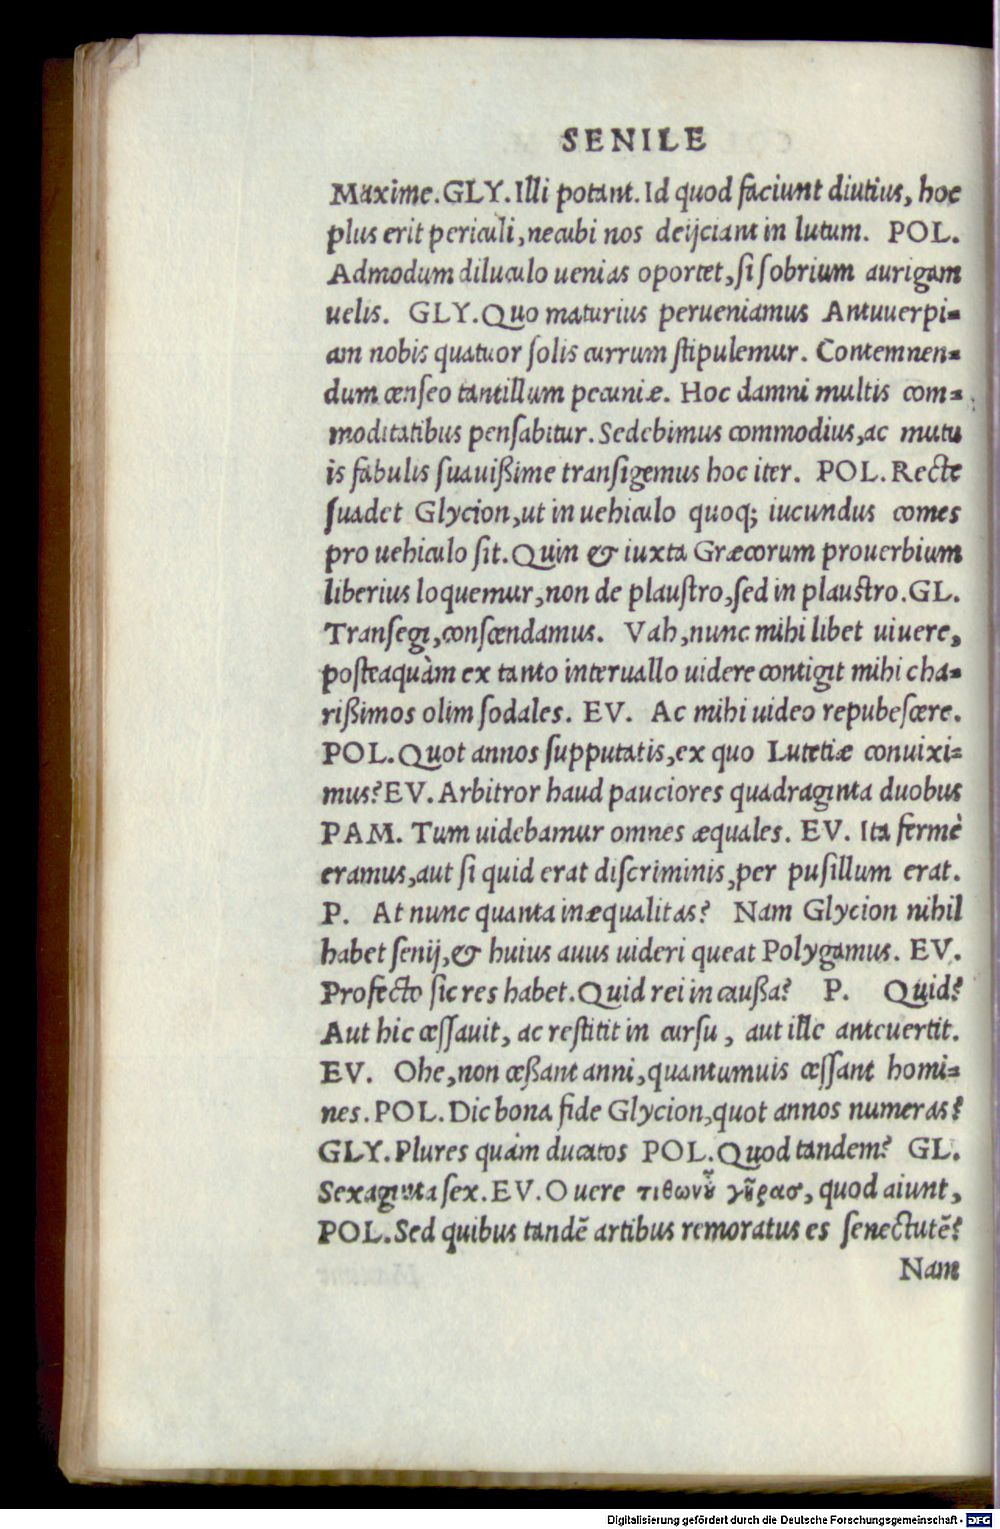 SENILE
Maxime. GLY. Illi potant. Id quod faciunt diutius, hoc
plus erit periculi, necubi nos deijciant in lutum. POL.
Admodum diluculo uenias oportet, si sobrium aurigam
uelis. GLY. Quo maturius perueniamus Antuuerpi-
am nobis quatuor solis currum stipulemur. Contemnen-
dum censeo tantillum pecuniæ. Hoc damni multis com-
moditatibus pensabitur. Sedebimus commodius, ac mutu
is fabulis suauißime transigemus hoc iter. POL. Recte
suadet Glycion, ut in uehiculo quoq; iucundus comes
pro uehiculo sit. Quin & iuxta Græcorum prouerbium
liberius loquemur, non de plaustro, sed in plaustro. GL.
Transegi, conscendamus. Vah, nunc mihi libet uiuere,
posteaquàm ex tanto interuallo uidere contigit mihi cha-
rißimos olim sodales. EV. Ac mihi uideo repubescere.
POL. Quot annos supputatis, ex quo Lutetiæ conuixi-
mus? EV. Arbitror haud pauciores quadraginta duobus
PAM. Tum uidebamur omnes æquales. EV. Ita fermè
eramus, aut si quid erat discriminis, per pusillum erat.
P. At nunc quanta inæqualitas? Nam Glycion nihil
habet senij, & huius auus uideri queat Polygamus. EV.
Profecto sic res habet. Quid rei in caußa? P. Quid?
Aut hic cessauit, ac restitit in cursu, aut ille anteuertit.
EV. Ohe, non ceßant anni, quantumuis cessant homi-
nes. POL. Dic bona fide Glycion, quot annos numeras?
GLY. Plures quàm ducatos POL. Quod tandem? GL.
Sexaginta sex. EV. O uere τιθωνοῦ γῆρασ, quod aiunt,
POL. Sed quibus tandẽ artibus remoratus es senectutẽ?
Nam
Digitalisierung gefördert durch die Deutsche Forschungsgemeinschaft - DFG